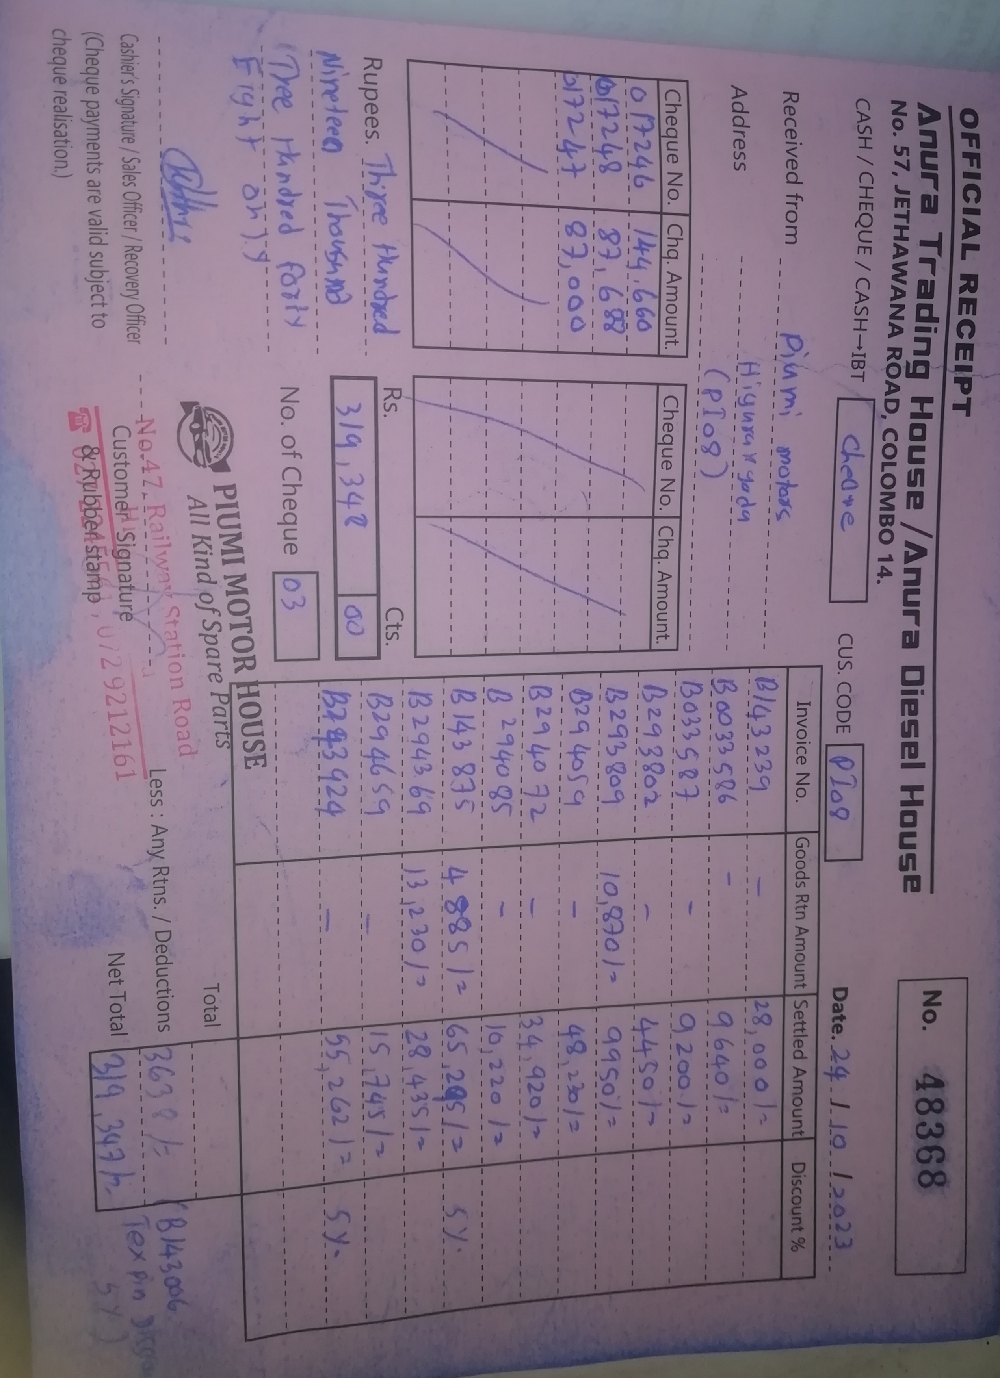 OFFICIAL RECEIPT
Anura Trading House / Anura Diesel House
No. 57, JETHAWANA ROAD, COLOMBO 14.
No. 48368
CASH / CHEQUE / CASH→IBT
CUS. CODE PI08
Date. 24 / 10 / 2023
Received from Piumi motors
Address
(PI08)
Cheque No. Chq. Amount. Cheque No. Chq. Amount.
017246 144,660
017248 87,688
017247 87,000
Rupees. Three Hundred
Nineteen Thousand
Three Hundred Forty
Eight only
Rs. Cts.
319,348 00
No. of Cheque 03
Invoice No. Goods Rtn Amount Settled Amount Discount %
B143239 - 28,000/=
B0033586 - 9640/=
B033587 - 9200/=
B293802 - 4450/=
B293809 10,870/= 9950/=
B294059 - 48,230/=
B294072 - 34,920/=
B294085 - 10,220/=
B143875 4885/= 65,295/= 5%
B294369 13,230/= 28,435/=
B294659 - 15,745/=
- 55,262/= 5%
Total
Less : Any Rtns. / Deductions 3638/= (B143006
Net Total 319,347/=
5%)
PIUMI MOTOR HOUSE
All Kind of Spare Parts
No.47, Railway Station Road
0729212161
Cashier's Signature / Sales Officer / Recovery Officer
(Cheque payments are valid subject to
cheque realisation.)
Customer Signature
& Rubber stamp